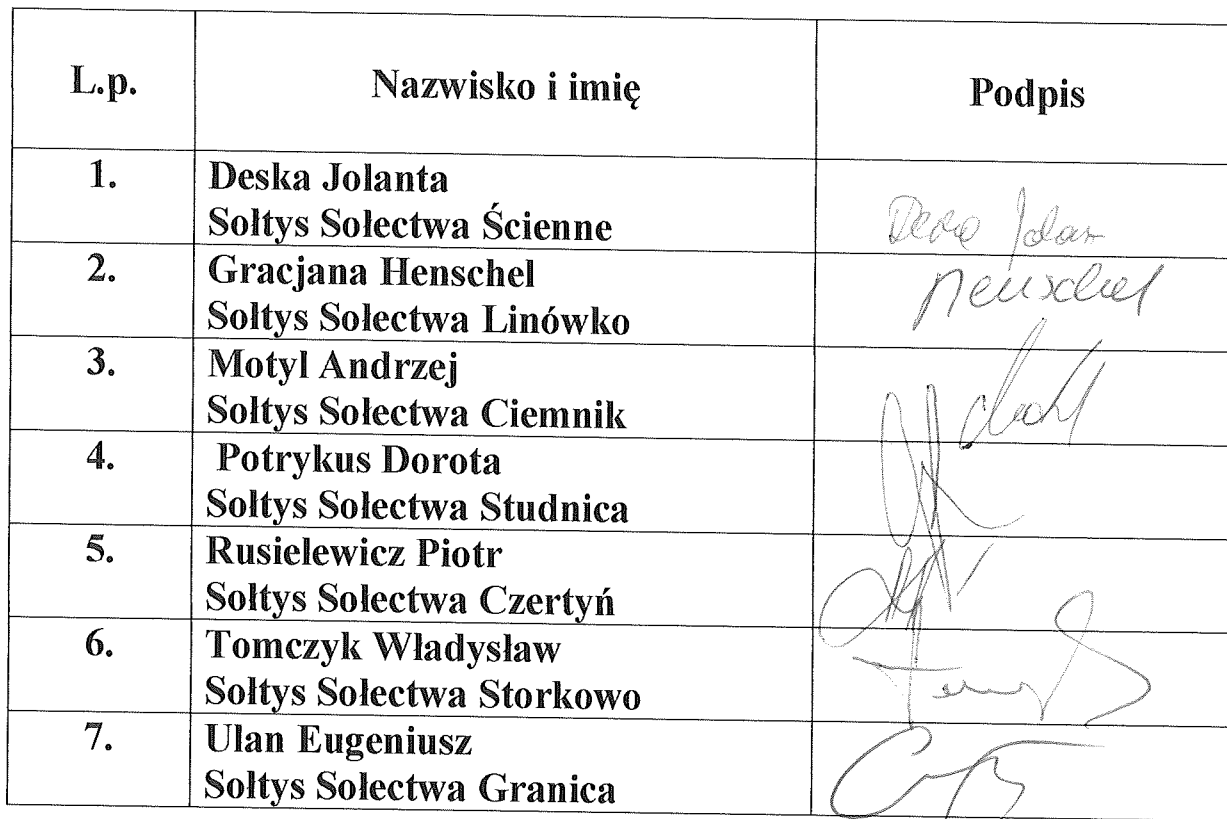 L.p. Nazwisko i imię Podpis
1. Deska Jolanta
Sołtys Sołectwa Ścienne
2. Gracjana Henschel Henschel
Sołtys Sołectwa Linówko
3. Motyl Andrzej
Sołtys Sołectwa Ciemnik
4. Potrykus Dorota
Sołtys Sołectwa Studnica
5. Rusielewicz Piotr
Sołtys Sołectwa Czertyń
6. Tomczyk Władysław
Sołtys Sołectwa Storkowo
7. Ulan Eugeniusz
Sołtys Sołectwa Granica